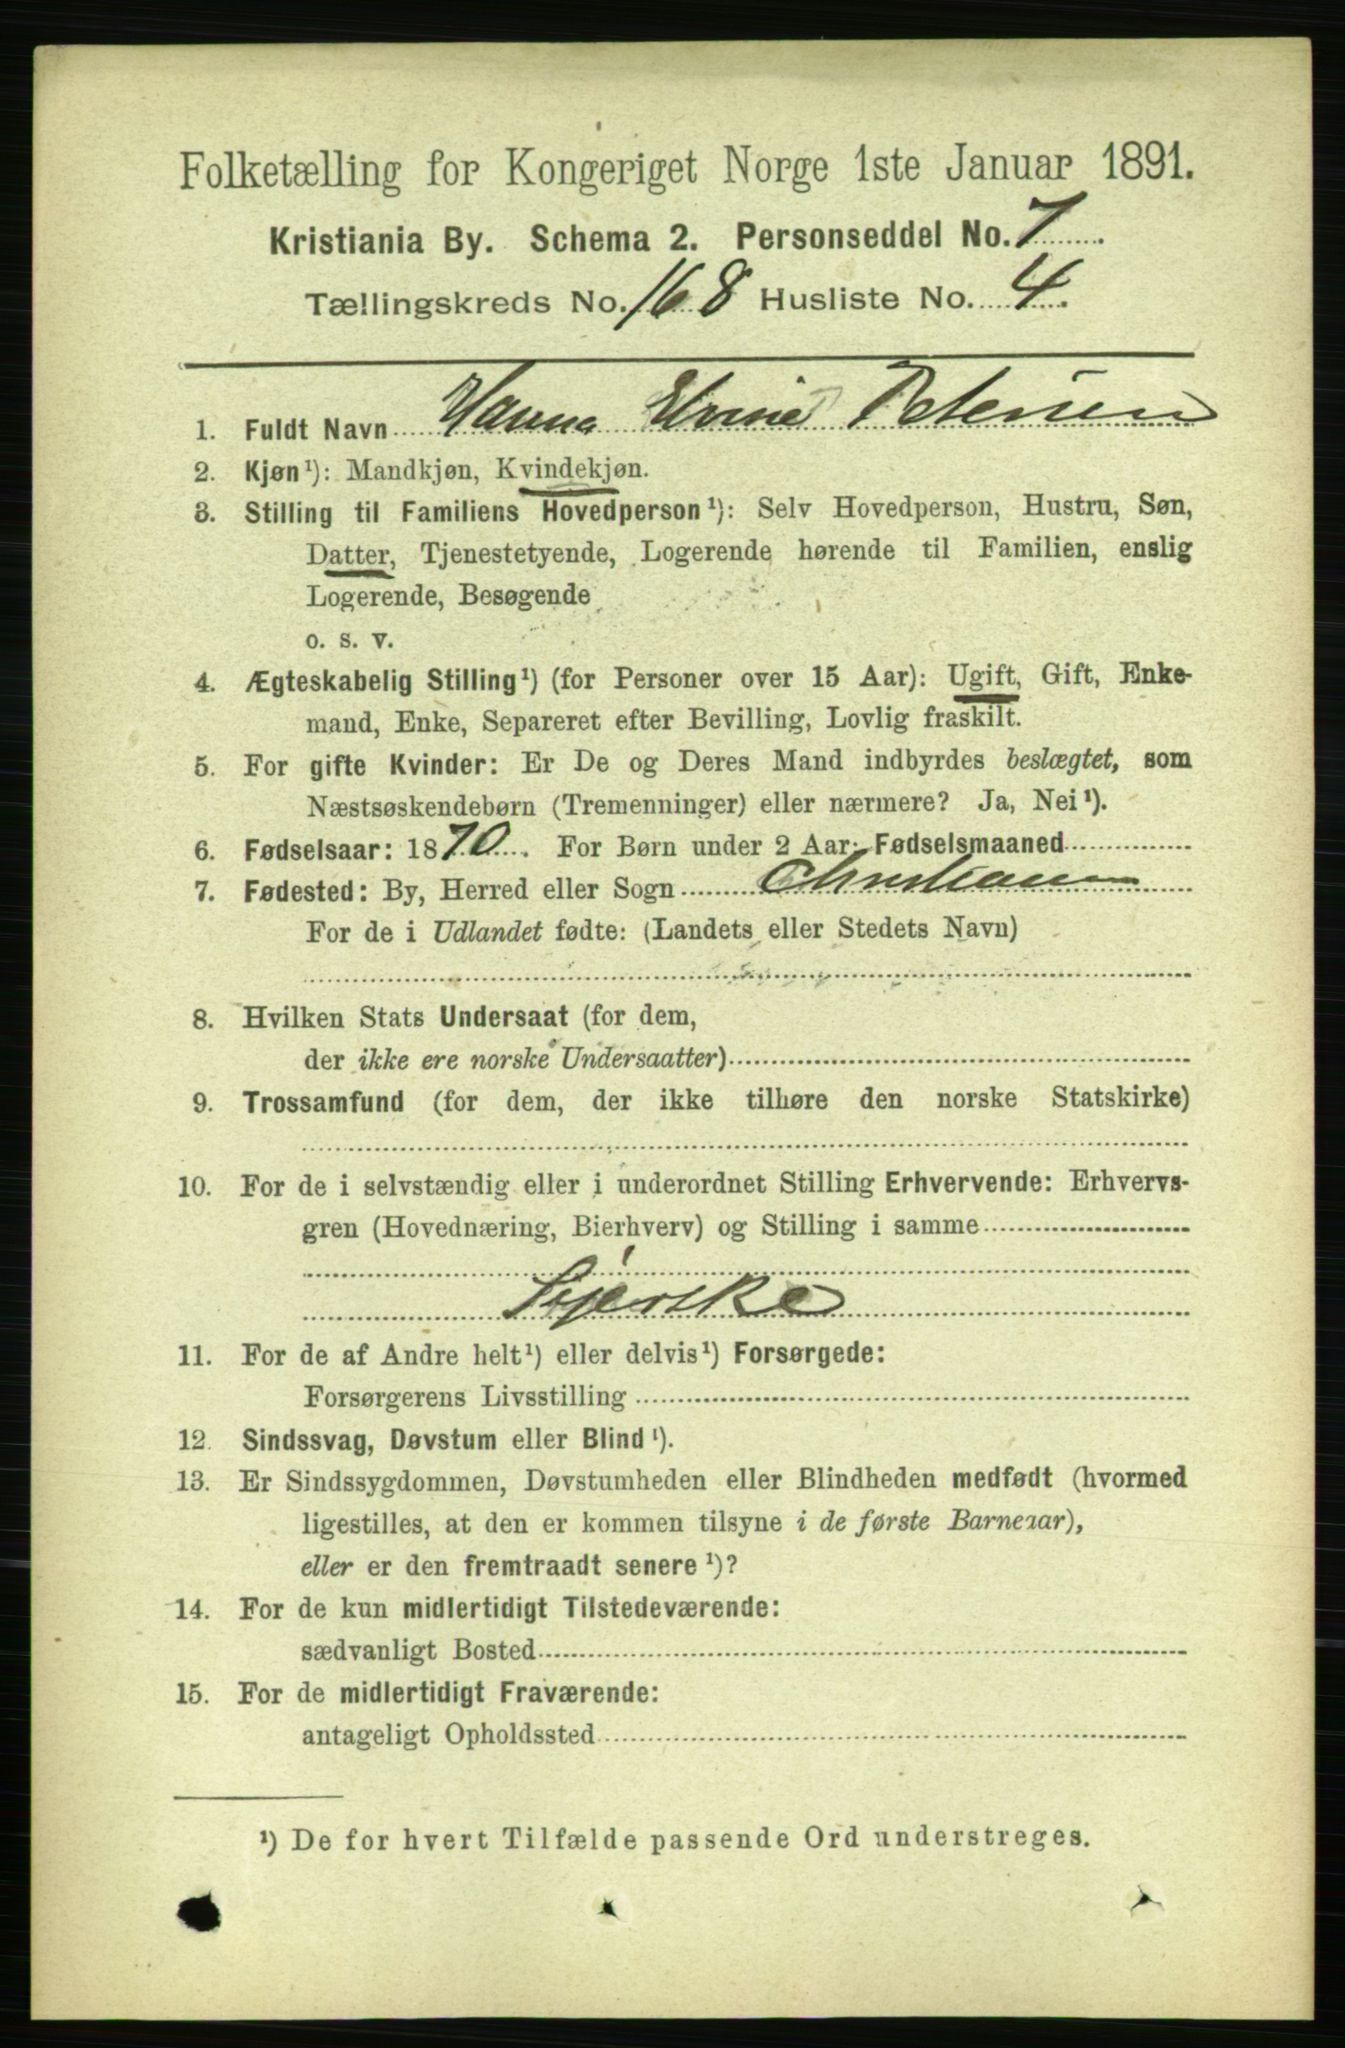 Folketælling for Kongeriget Norge 1ste Januar 1891.
Kristiania By. Schema 2. Personseddel No. 7
Tællingskreds No. 168 Husliste No. 4.
1. Fuldt Navn Hanna Petersen
2. Kjøn¹): Mandkjøn, Kvindekjøn.
3. Stilling til Familiens Hovedperson¹): Selv Hovedperson, Hustru, Søn,
Datter, Tjenestetyende, Logerende hørende til Familien, enslig
Logerende, Besøgende
o. s. v.
4. Ægteskabelig Stilling¹) (for Personer over 15 Aar): Ugift, Gift, Enke-
mand, Enke, Separeret efter Bevilling, Lovlig fraskilt.
5. For gifte Kvinder: Er De og Deres Mand indbyrdes beslægtet, som
Næstsøskendebørn (Tremenninger) eller nærmere? Ja, Nei¹).
6. Fødselsaar: 1870. For Børn under 2 Aar: Fødselsmaaned
7. Fødested: By, Herred eller Sogn Christiania
For de i Udlandet fødte: (Landets eller Stedets Navn)
8. Hvilken Stats Undersaat (for dem,
der ikke ere norske Undersaatter)
9. Trossamfund (for dem, der ikke tilhøre den norske Statskirke)
10. For de i selvstændig eller i underordnet Stilling Erhvervende: Erhvervs-
gren (Hovednæring, Bierhverv) og Stilling i samme
Syerske
11. For de af Andre helt¹) eller delvis¹) Forsørgede:
Forsørgerens Livsstilling
12. Sindssvag, Døvstum eller Blind¹).
13. Er Sindssygdommen, Døvstumheden eller Blindheden medfødt (hvormed
ligestilles, at den er kommen tilsyne i de første Barneaar),
eller er den fremtraadt senere¹)?
14. For de kun midlertidigt Tilstedeværende:
sædvanligt Bosted
15. For de midlertidigt Fraværende:
antageligt Opholdssted
¹) De for hvert Tilfælde passende Ord understreges.